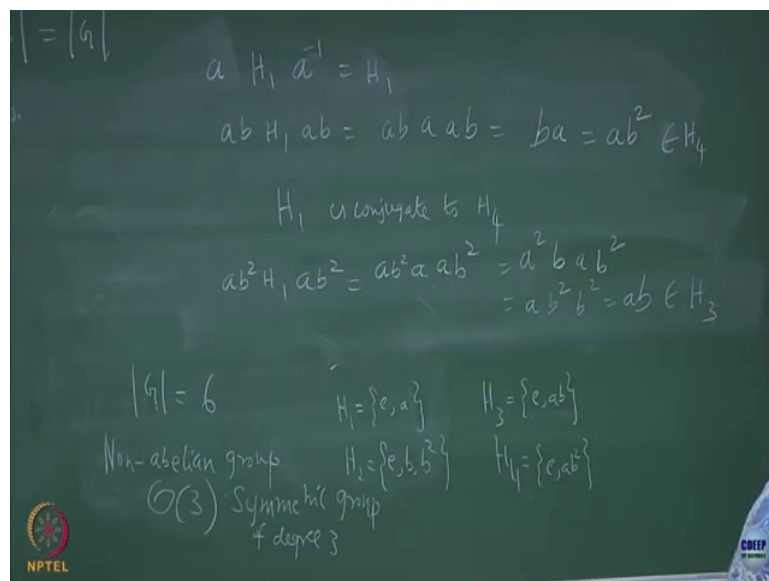 | = |G|
a H₁ a⁻¹ = H₁
s.
ab H₁ ab = ab a ab = ba = ab² ∈ H₄
H₁ is conjugate to H₄
ab² H₁ ab² = ab² a ab² = a² b a b²
= a b² b² = ab ∈ H₃
|G| = 6
H₁ = {e, a}
H₃ = {e, ab}
Non-abelian group
H₂ = {e, b, b²}
H₄ = {e, ab²}
(3) Symmetric group
of degree 3
NPTEL
CDEEP